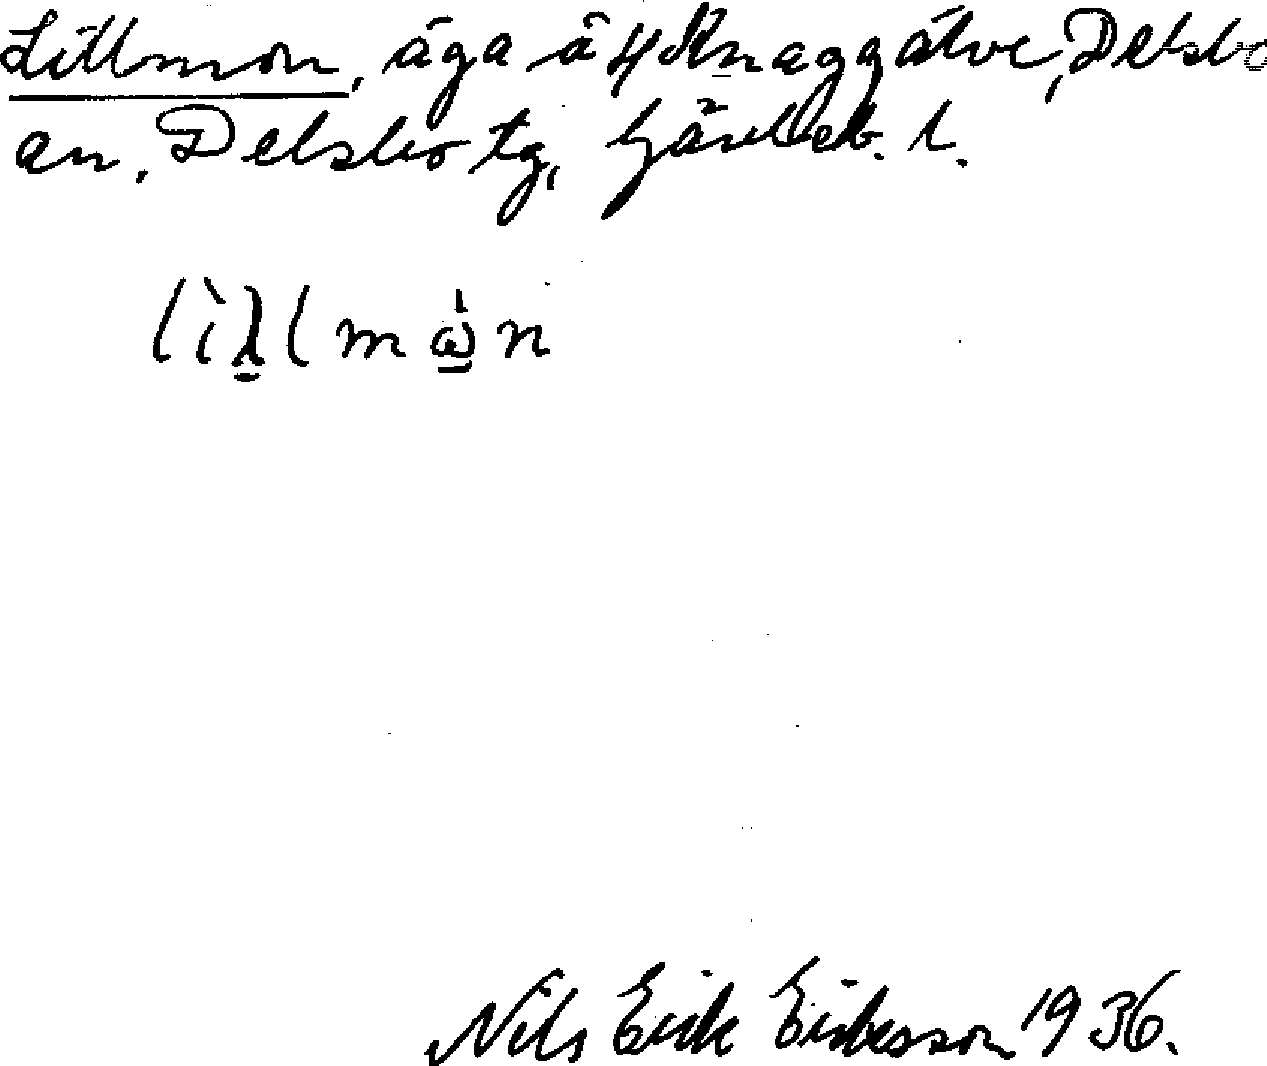 Lillmon, äga å 4 Knaggälve, Delsbo
an, Delsbo tg, Gävleb. l.
lìllmòn
Nils Erik Eriksson 1936.